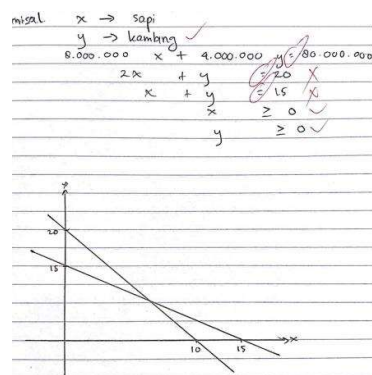 misal x → sapi
y → kambing ✓
8.000.000 x + 4.000.000 y = 80.000.000
2x + y = 20 X
x + y = 15 X
x ≥ 0 ✓
y ≥ 0 ✓
y
20
15
10 15 x